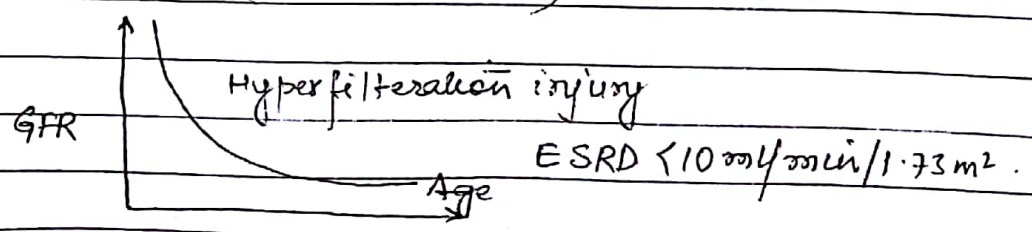 Hyperfilteration injury
GFR
ESRD <10 ml/min/1.73 m².
Age